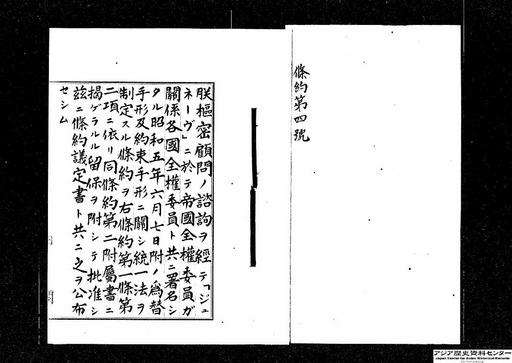 條約第四號
朕樞密顧問ノ諮詢ヲ經テ「ジュ
ネーヴ」ニ於テ帝國全權委員ガ
關係各國全權委員ト共ニ署名シ
タル昭和五年六月七日附ノ爲替
手形及約束手形ニ關シ統一法ヲ
制定スル條約ヲ右條約第一條第
二項ニ依リ同條約第二附屬書ニ
揭ゲラルル留保ヲ附シテ批准シ
茲ニ條約議定書ト共ニ之ヲ公布
セシム
アジア歴史資料センター
Japan Center for Asian Historical Records